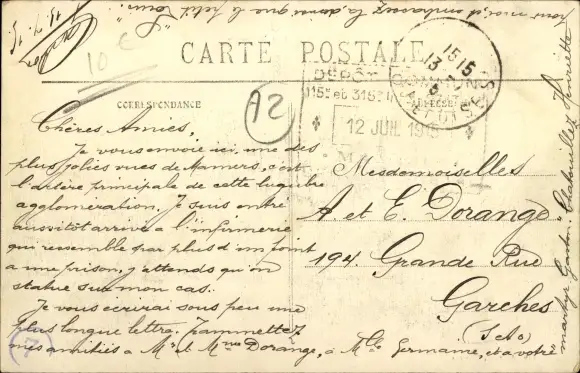 CARTE POSTALE
CORRESPONDANCE
10 €
A2
DEPÔT
115e et 316e IN
12 JUIL 1915
15 15
13
Chères Amies,
Je vous envoie ici, une des
plus jolies vues de Mamers, c'est
l'artère principale de cette lugubre
agglomération. Je suis entré
aussitôt arrivé à l'infirmerie
qui ressemble par plus d'un point
a une prison, j'attends qu'on
statue sur mon cas.
Je vous écrirai sous peu une
plus longue lettre. Transmettez
mes amitiés à Mr et Mme Dorange, à Mlle Germaine, et a votre
martyr Gaston. Chatouillez Henriette
pour moi, et embrassez la, ainsi que le petit
13.7.15
Mesdemoiselles
A et E. Dorange
194 Grande Rue
Garches
(S et O)
7